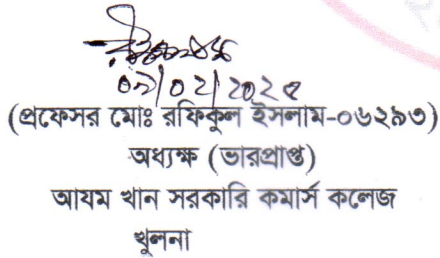 ০৯/০২/২০২৫
(প্রফেসর মোঃ রফিকুল ইসলাম-০৬২৯৩)
অধ্যক্ষ (ভারপ্রাপ্ত)
আযম খান সরকারি কমার্স কলেজ
খুলনা